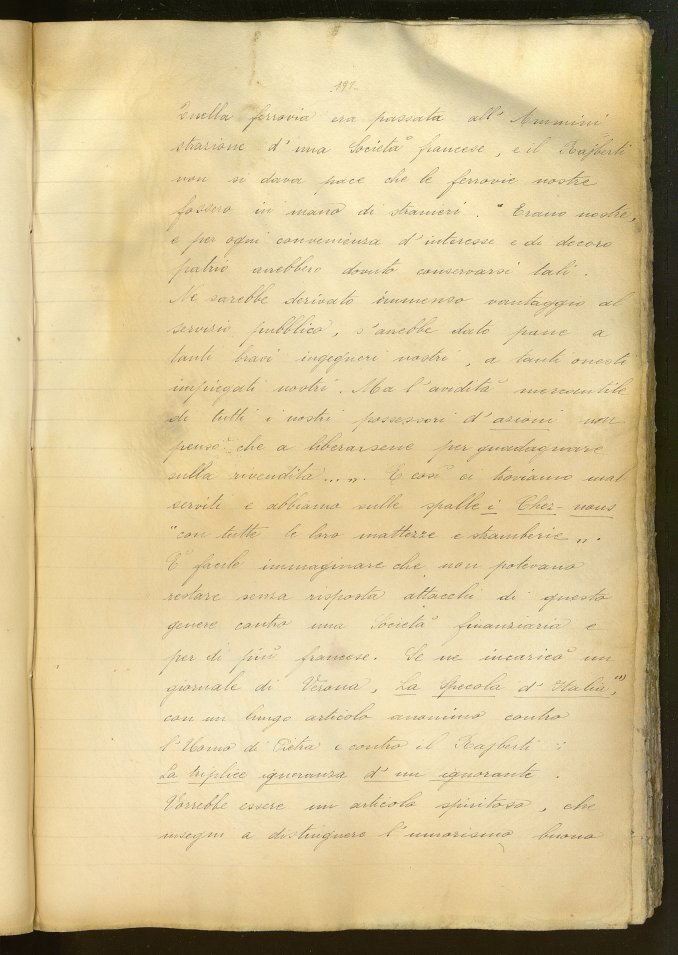 191.
Quella ferrovia era passata all' Ammini
strazione d' una Società francese, e il Rajberti
non si dava pace che le ferrovie nostre
fossero in mano di stranieri. "Erano nostre,
e per ogni convenienza d' interesse e di decoro
patrio avrebbero dovuto conservarsi tali.
Ne sarebbe derivato immenso vantaggio al
servizio pubblico, s' avrebbe dato pane a
tanti bravi ingegneri nostri, a tanti onesti
impiegati nostri. Ma l' avidità mercantile
di tutti i nostri possessori d' azioni non
pensò che a liberarsene per guadagnare
sulla rivendita ... „. E così ci troviamo mal
serviti e abbiamo sulle spalle i Chez-nous
"con tutte le loro mattezze e stramberie „.
È facile immaginare che non potevano
restare senza risposta attacchi di questo
genere contro una Società finanziaria e
per di più francese. Se ne incaricò un
giornale di Verona, La Specola d' Italia, (1)
con un lungo articolo anonimo contro
l' Uomo di Pietra e contro il Rajberti :
La triplice ignoranza d' un ignorante.
Vorrebbe essere un articolo spiritoso, che
insegni a distinguere l' umorismo buono